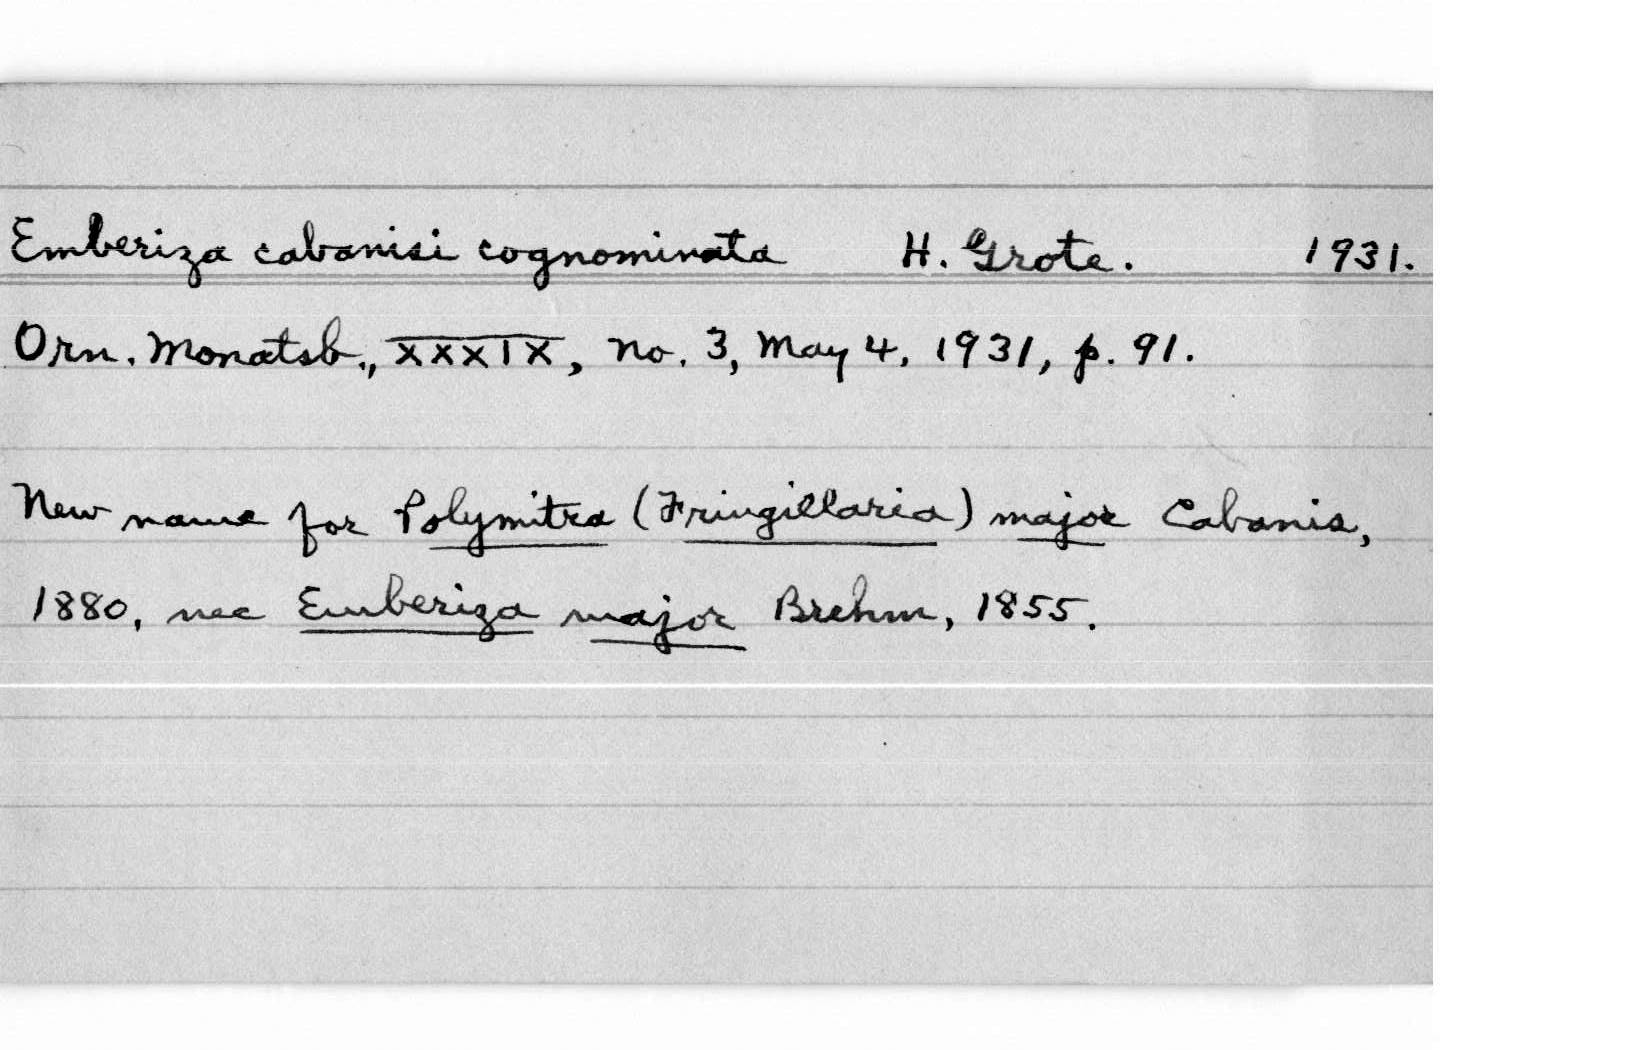 Emberiza cabanisi cognominata H. Grote. 1931.
Orn. Monatsb., XXXIX, no. 3, May 4, 1931, p. 91.
New name for Polymitra (Fringillaria) major Cabanis,
1880, nec Emberiza major Brehm, 1855.